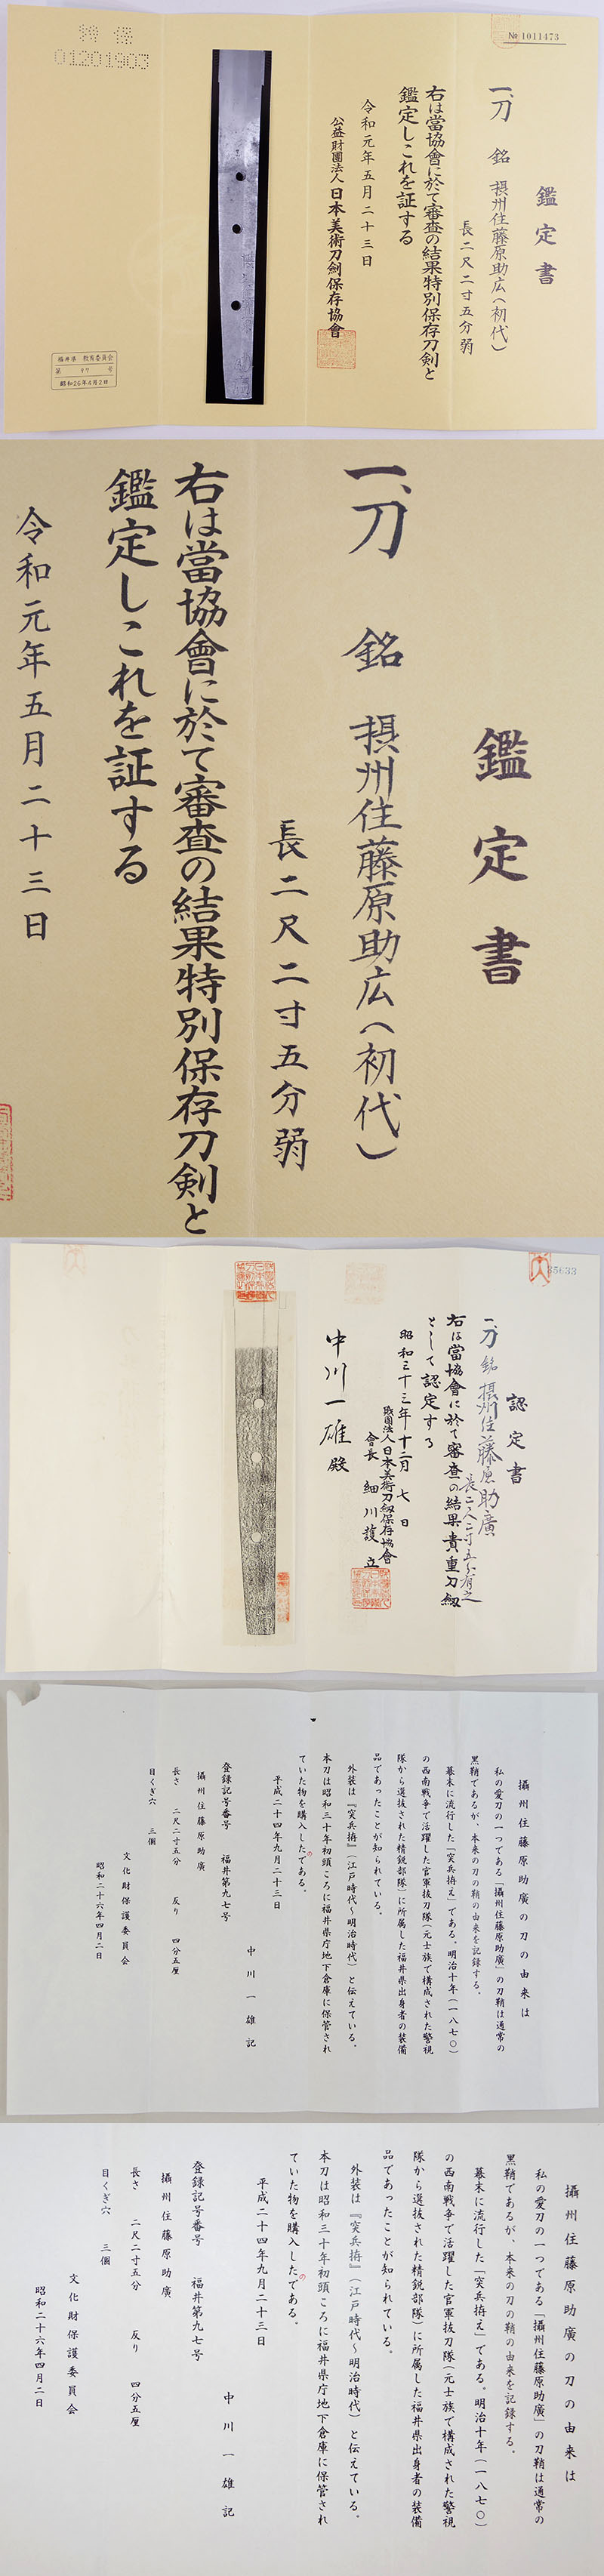 特保
01201903
№ 1011473
鑑定書
一、刀 銘 摂州住藤原助広(初代)
長二尺二寸五分弱
右は當協會に於て審査の結果特別保存刀剣と
鑑定しこれを証する
令和元年五月二十三日
公益財團法人日本美術刀劍保存協會
福井県 教育委員会
第 97 号
昭和26年4月2日
鑑定書
一、刀 銘 摂州住藤原助広(初代)
長二尺二寸五分弱
右は當協會に於て審査の結果特別保存刀剣と
鑑定しこれを証する
令和元年五月二十三日
35633
認定書
一、刀 銘 摂州住藤原助廣
長二尺二寸五分有之
右は當協會に於て審査の結果貴重刀劔
として認定する
昭和三十三年十二月七日
財團法人日本美術刀劔保存協會
會長 細川護立
中川一雄殿
攝州住藤原助廣の刀の由来は
私の愛刀の一つである「攝州住藤原助廣」の刀鞘は通常の
黒鞘であるが、本来の刀の鞘の由来を記録する。
幕末に流行した「突兵拵え」である。明治十年(一八七〇)
の西南戦争で活躍した官軍抜刀隊(元士族で構成された警視
隊から選抜された精鋭部隊)に所属した福井県出身者の装備
品であったことが知られている。
外装は『突兵拵』(江戸時代~明治時代)と伝えている。
本刀は昭和三十年初頭ころに福井県庁地下倉庫に保管され
ていた物を購入したのである。
平成二十四年九月二十三日
中川一雄記
登録記号番号 福井第九七号
攝州住藤原助廣
長さ 二尺二寸五分 反り 四分五厘
目くぎ穴 三個
文化財保護委員会
昭和二十六年四月二日
攝州住藤原助廣の刀の由来は
私の愛刀の一つである「攝州住藤原助廣」の刀鞘は通常の
黒鞘であるが、本来の刀の鞘の由来を記録する。
幕末に流行した「突兵拵え」である。明治十年(一八七〇)
の西南戦争で活躍した官軍抜刀隊(元士族で構成された警視
隊から選抜された精鋭部隊)に所属した福井県出身者の装備
品であったことが知られている。
外装は『突兵拵』(江戸時代~明治時代)と伝えている。
本刀は昭和三十年初頭ころに福井県庁地下倉庫に保管され
ていた物を購入したのである。
平成二十四年九月二十三日
中川一雄記
登録記号番号 福井第九七号
攝州住藤原助廣
長さ 二尺二寸五分 反り 四分五厘
目くぎ穴 三個
文化財保護委員会
昭和二十六年四月二日